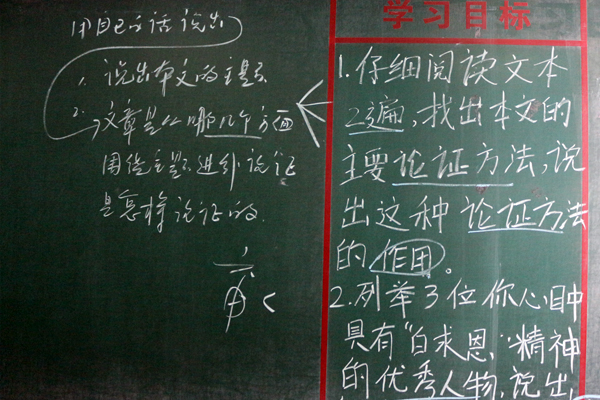 用自己的话说出
1. 说出本文的主题
2. 文章是从哪几个方面
围绕主题进行论证
是怎样论证的.
学习目标
1.仔细阅读文本
2遍,找出本文的
主要论证方法,说
出这种论证方法
的作用。
2.列举3位你心目中
具有"白求恩"精神
的优秀人物,说出